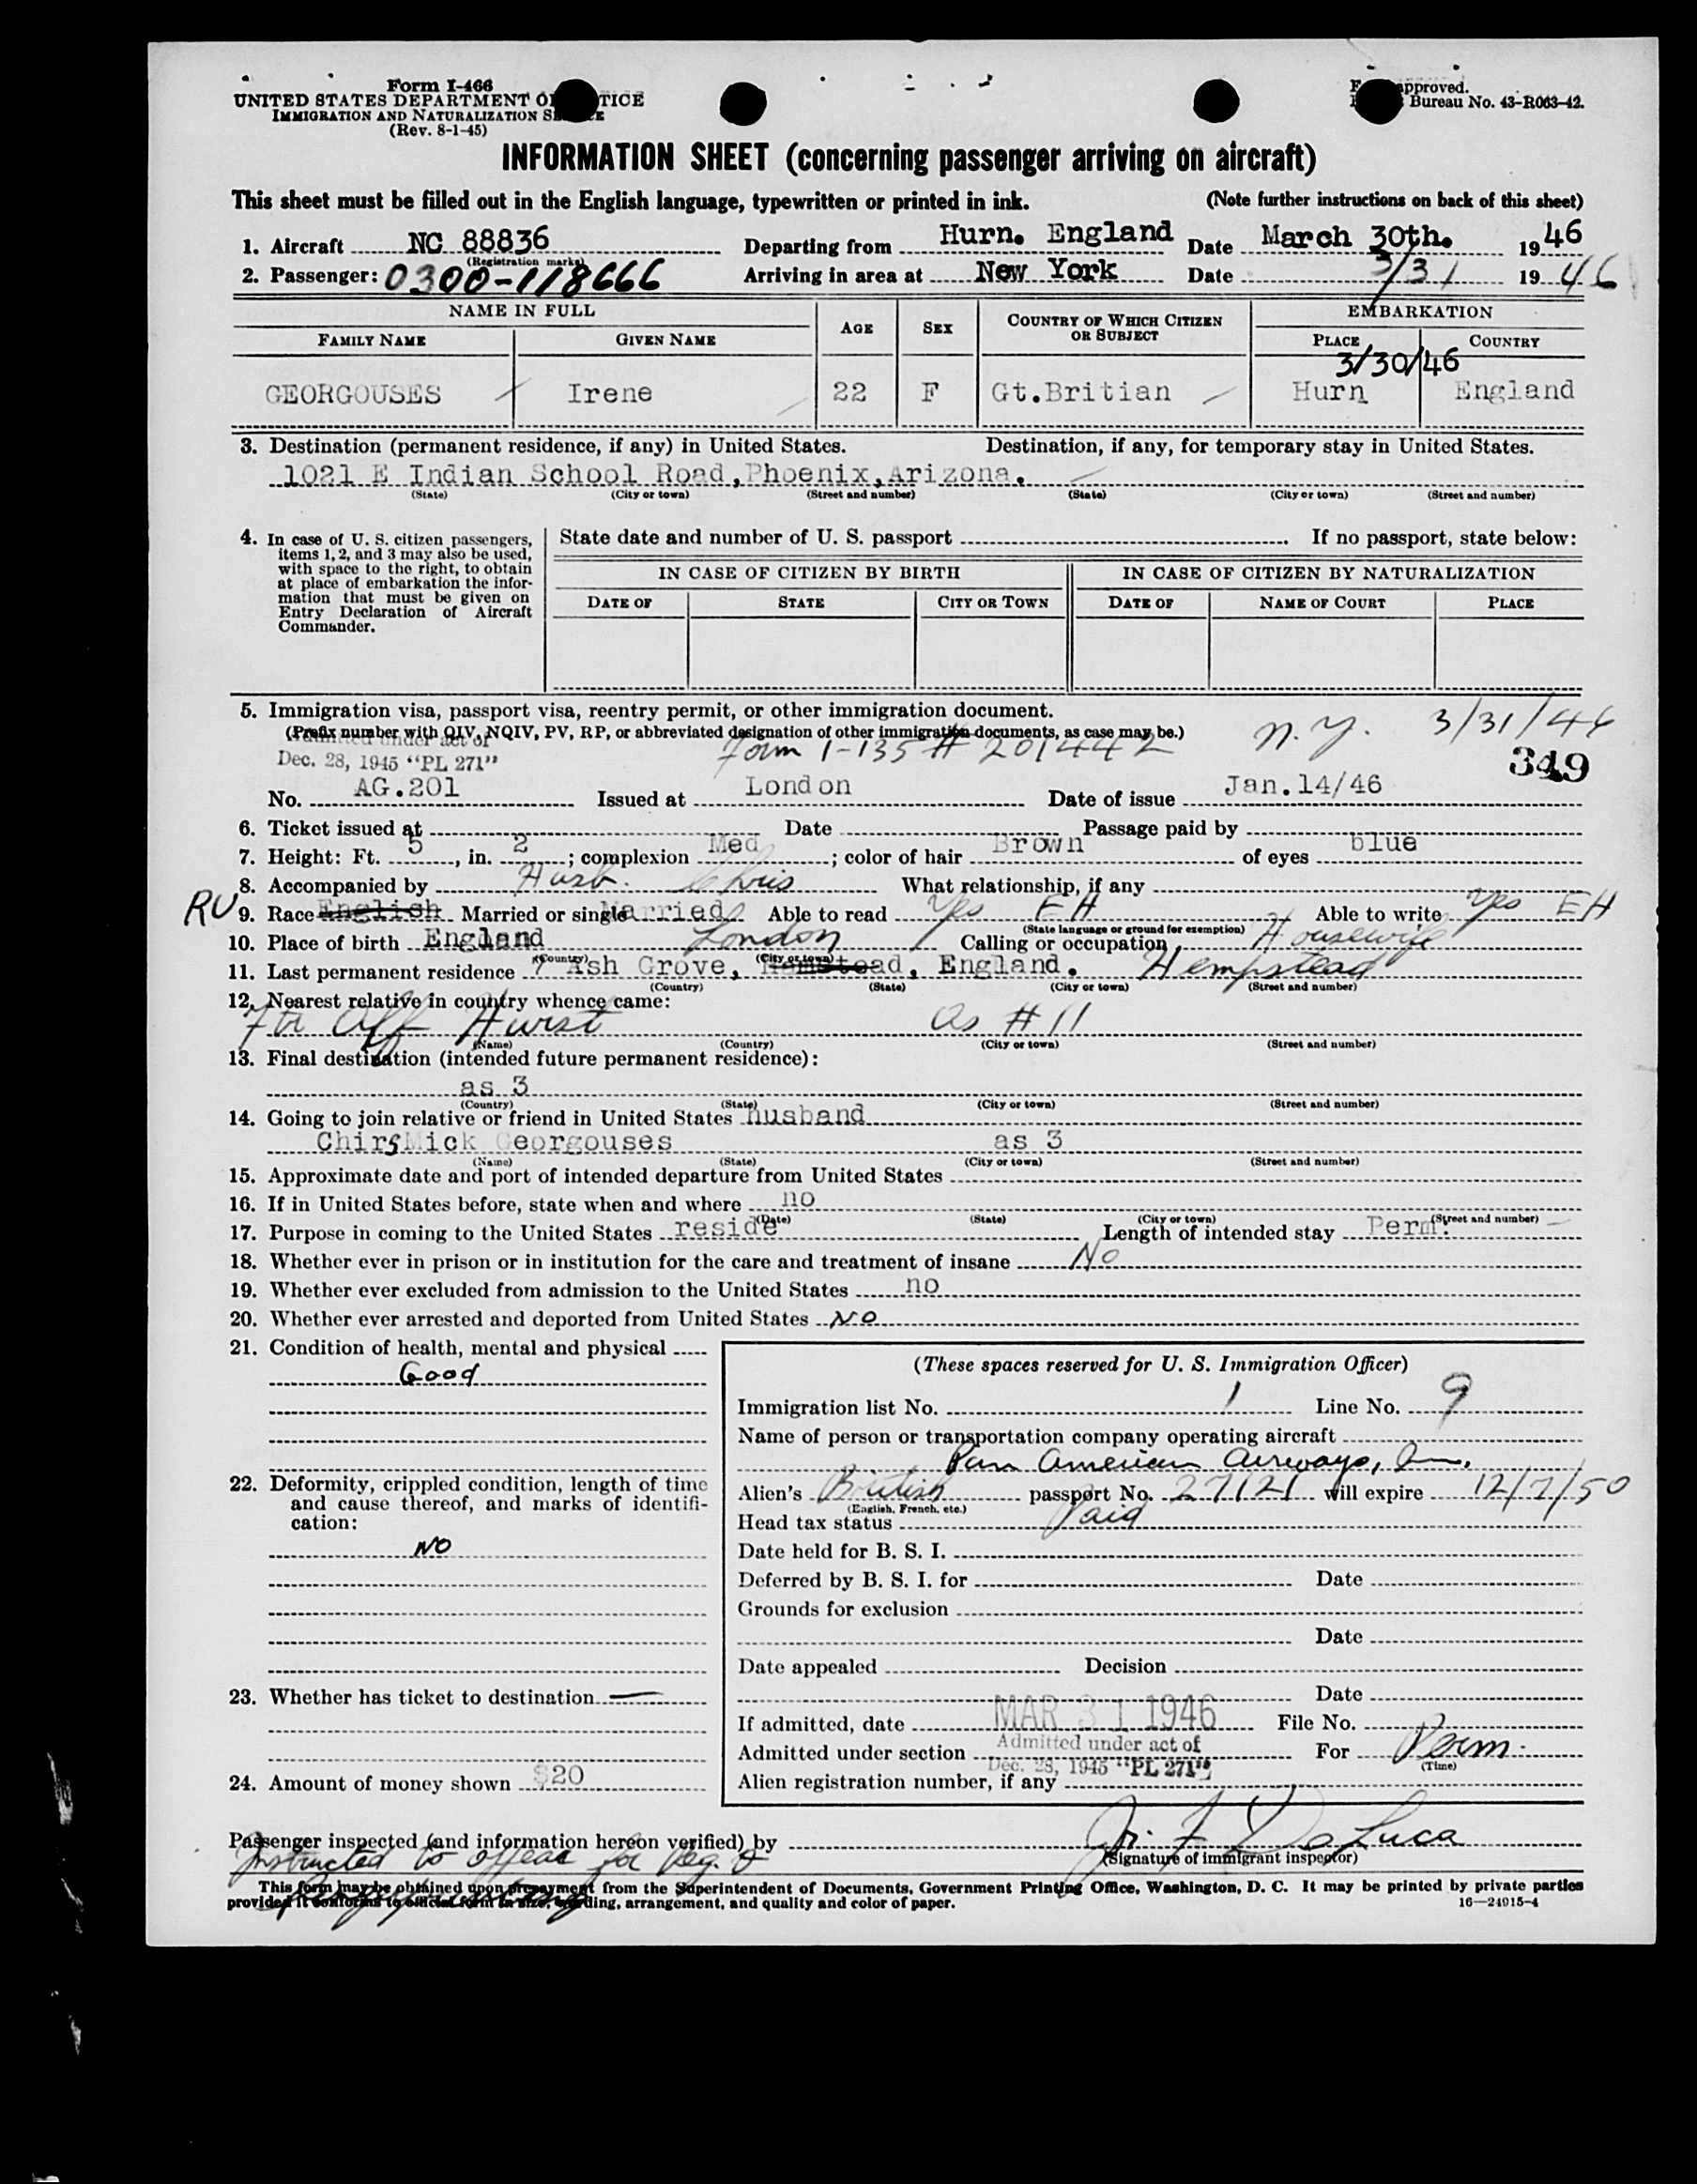 Form I-466
UNITED STATES DEPARTMENT OF TICE
IMMIGRATION AND NATURALIZATION SE E
(Rev. 8-1-45)
pproved.
Bureau No. 43-R063-42.
INFORMATION SHEET (concerning passenger arriving on aircraft)
This sheet must be filled out in the English language, typewritten or printed in ink. (Note further instructions on back of this sheet)
1. Aircraft NC 88836 Departing from Hurn. England Date March 30th. 1946
(Registration marks)
2. Passenger: 0300-118666 Arriving in area at New York Date 3/31 1946
NAME IN FULL AGE SEX COUNTRY OF WHICH CITIZEN OR SUBJECT EMBARKATION
FAMILY NAME GIVEN NAME PLACE COUNTRY
3/30/46
GEORGOUSES Irene 22 F Gt.Britian Hurn England
3. Destination (permanent residence, if any) in United States. Destination, if any, for temporary stay in United States.
1021 E Indian School Road, Phoenix, Arizona.
(State) (City or town) (Street and number) (State) (City or town) (Street and number)
4. In case of U. S. citizen passengers, items 1, 2, and 3 may also be used, with space to the right, to obtain at place of embarkation the information that must be given on Entry Declaration of Aircraft Commander.
State date and number of U. S. passport If no passport, state below:
IN CASE OF CITIZEN BY BIRTH IN CASE OF CITIZEN BY NATURALIZATION
DATE OF STATE CITY OR TOWN DATE OF NAME OF COURT PLACE
5. Immigration visa, passport visa, reentry permit, or other immigration document. N.Y. 3/31/46
(Prefix number with QIV, NQIV, PV, RP, or abbreviated designation of other immigration documents, as case may be.)
Admitted under act of
Dec. 28, 1945 "PL 271" Form I-135 # 201442 349
No. AG.201 Issued at London Date of issue Jan.14/46
6. Ticket issued at Date Passage paid by
7. Height: Ft. 5, in. 2; complexion Med; color of hair Brown of eyes blue
8. Accompanied by Husb. Chris What relationship, if any
RU 9. Race English Married or single Married Able to read Yes EH Able to write Yes EH
(State language or ground for exemption)
10. Place of birth England London Calling or occupation Housewife
(Country) (City or town)
11. Last permanent residence 7 Ash Grove, Hamstead, England. Hempstead
(Country) (State) (City or town) (Street and number)
12. Nearest relative in country whence came:
Hurst as #11
(Name) (Country) (City or town) (Street and number)
13. Final destination (intended future permanent residence):
as 3
(Country) (State) (City or town) (Street and number)
14. Going to join relative or friend in United States husband
Chirs Mick Georgouses as 3
(Name) (State) (City or town) (Street and number)
15. Approximate date and port of intended departure from United States
16. If in United States before, state when and where no
(Date) (State) (City or town) (Street and number)
17. Purpose in coming to the United States reside Length of intended stay Perm.
18. Whether ever in prison or in institution for the care and treatment of insane No
19. Whether ever excluded from admission to the United States no
20. Whether ever arrested and deported from United States NO
21. Condition of health, mental and physical
Good
22. Deformity, crippled condition, length of time and cause thereof, and marks of identification:
NO
23. Whether has ticket to destination —
24. Amount of money shown $20
(These spaces reserved for U. S. Immigration Officer)
Immigration list No. 1 Line No. 9
Name of person or transportation company operating aircraft
Pan American Airways, Inc.
Alien's British passport No. 27121 will expire 12/7/50
(English, French, etc.)
Head tax status Paid
Date held for B. S. I.
Deferred by B. S. I. for Date
Grounds for exclusion
Date
Date appealed Decision
Date
If admitted, date MAR 31 1946 File No.
Admitted under section Admitted under act of Dec. 28, 1945 "PL 271" For Perm.
(Time)
Alien registration number, if any
Passenger inspected (and information hereon verified) by De Luca
(Signature of immigrant inspector)
Instructed to appear for Reg. &
This form may be obtained upon prepayment from the Superintendent of Documents, Government Printing Office, Washington, D. C. It may be printed by private parties
provided it conforms to official form in size, wording, arrangement, and quality and color of paper. 16—24915-4